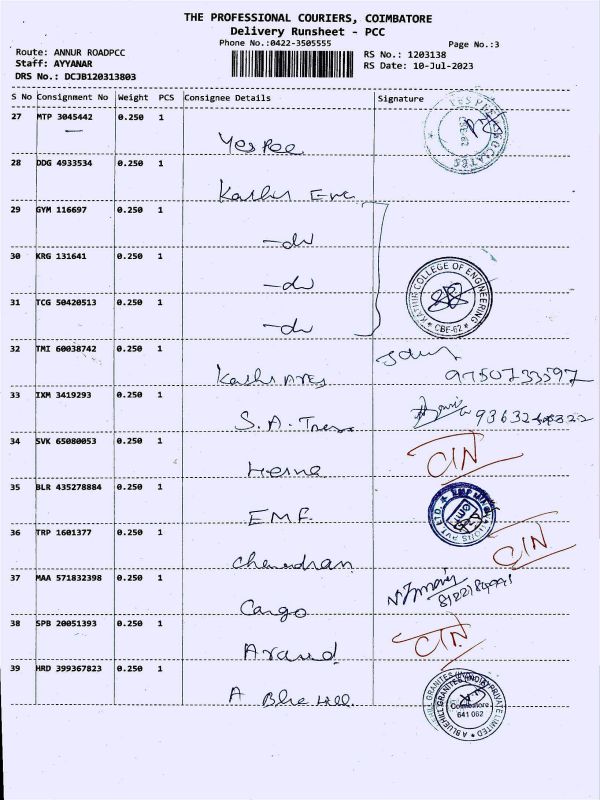 THE PROFESSIONAL COURIERS, COIMBATORE
Delivery Runsheet - PCC
Phone No.:0422-3505555
Page No.:3
Route: ANNUR ROADPCC
Staff: AYYANAR
DRS No.: DCJB120313803
RS No.: 1203138
RS Date: 10-Jul-2023
S No Consignment No Weight PCS Consignee Details Signature
27 MTP 3045442 0.250 1
Yes Pee
28 DDG 4933534 0.250 1
Kathir Eng
29 GYM 116697 0.250 1
-do
30 KRG 131641 0.250 1
-do
KATHIR COLLEGE OF ENGINEERING
* CBE-62 *
31 TCG 50420513 0.250 1
-do
32 TMI 60038742 0.250 1
Kathir Arts
9750733597
33 IXM 3419293 0.250 1
S.A.
34 SVK 65080053 0.250 1
CIN
35 BLR 435278884 0.250 1
EMF
36 TRP 1601377 0.250 1
Chandran CIN
37 MAA 571832398 0.250 1
Cargo
38 SPB 20051393 0.250 1
Anand CIN
39 HRD 399367823 0.250 1
A Blue Hill
A BLUEHILL GRANITES (INDIA) PRIVATE LIMITED
Coimbatore
641 062